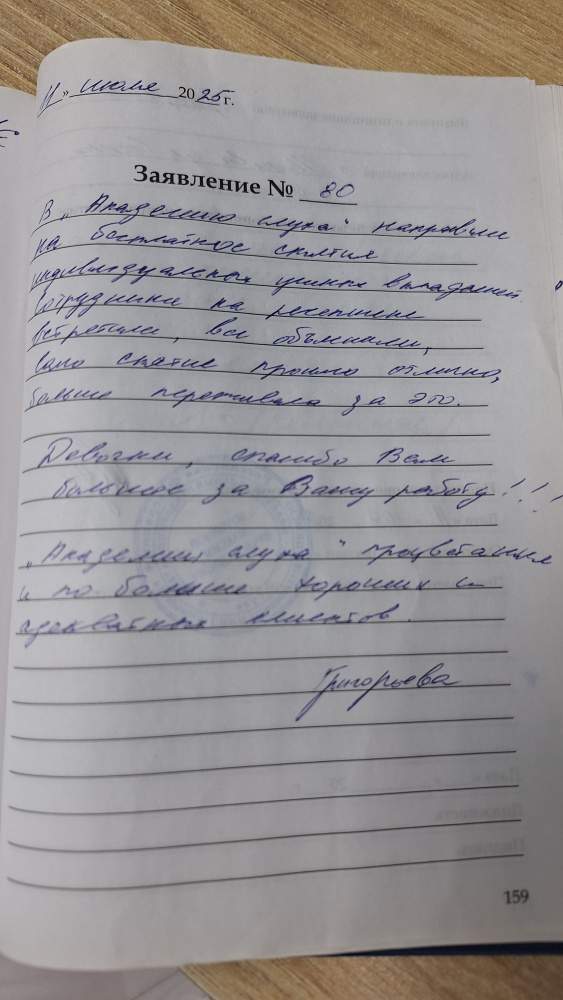 11 » июля 2025 г.
Заявление № 80
В „Академию слуха" направили
на бесплатное снятие
индивидуальных ушных вкладышей.
Сотрудники на ресепшене
встретили, все объяснили,
само снятие прошло отлично,
больше переживала за это.
Девочки, спасибо Вам
большое за Вашу работу!!!
„Академии слуха" процветания
и по больше хороших и
адекватных клиентов.
Григорьева
159